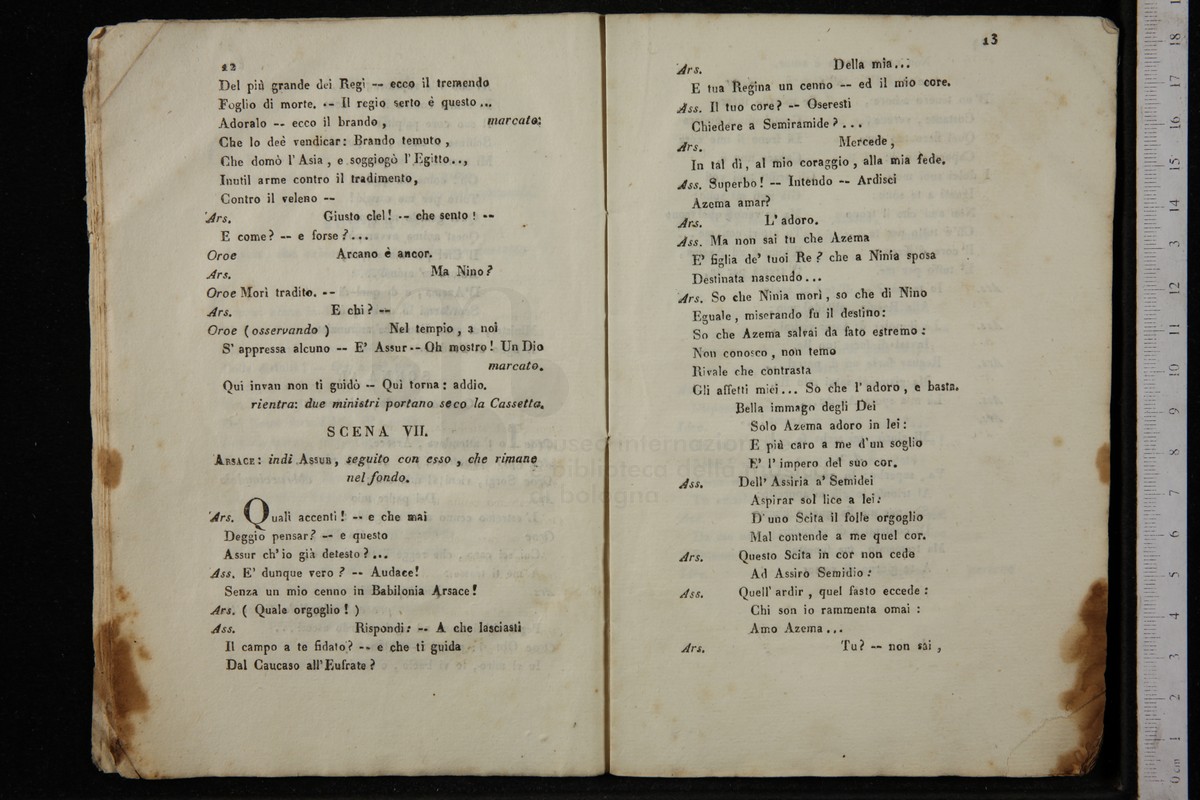 12
Del più grande dei Regi -- ecco il tremendo
Foglio di morte. -- Il regio serto è questo ...
Adoralo -- ecco il brando , marcato:
Che lo deè vendicar: Brando temuto ,
Che domò l'Asia , e soggiogò l'Egitto..,
Inutil arme contro il tradimento,
Contro il veleno --
Ars. Giusto ciel! -- che sento ! --
E come? -- e forse ?...
Oroe Arcano è ancor.
Ars. Ma Nino?
Oroe Morì tradito. --
Ars. E chi? --
Oroe ( osservando ) Nel tempio , a noi
S' appressa alcuno -- E' Assur -- Oh mostro! Un Dio
marcato.
Qui invan non ti guidò -- Qui torna: addio.
rientra: due ministri portano seco la Cassetta.
SCENA VII.
ARSACE: indi ASSUR, seguito con esso , che rimane
nel fondo.
Ars. Quali accenti! -- e che mai
Deggio pensar? -- e questo
Assur ch' io già detesto ? ...
Ass. E' dunque vero ? -- Audace!
Senza un mio cenno in Babilonia Arsace!
Ars. ( Quale orgoglio ! )
Ass. Rispondi: -- A che lasciasti
Il campo a te fidato? -- e che ti guida
Dal Caucaso all'Eufrate ?
13
Ars. Della mia...
E tua Regina un cenno -- ed il mio core.
Ass. Il tuo core? -- Oseresti
Chiedere a Semiramide ? ...
Ars. Mercede ,
In tal dì, al mio coraggio , alla mia fede.
Ass. Superbo! -- Intendo -- Ardisci
Azema amar?
Ars. L' adoro.
Ass. Ma non sai tu che Azema
E' figlia de' tuoi Re ? che a Ninia sposa
Destinata nascendo...
Ars. So che Ninia morì , so che di Nino
Eguale , miserando fu il destino:
So che Azema salvai da fato estremo :
Non conosco , non temo
Rivale che contrasta
Gli affetti miei... So che l' adoro , e basta.
Bella immago degli Dei
Solo Azema adoro in lei:
E più caro a me d'un soglio
E' l' impero del suo cor.
Ass. Dell' Assiria a' Semidei
Aspirar sol lice a lei:
D' uno Scita il folle orgoglio
Mal contende a me quel cor.
Ars. Questo Scita in cor non cede
Ad Assiro Semidio :
Ass. Quell' ardir , quel fasto eccede :
Chi son io rammenta omai :
Amo Azema ...
Ars. Tu? -- non sai ,